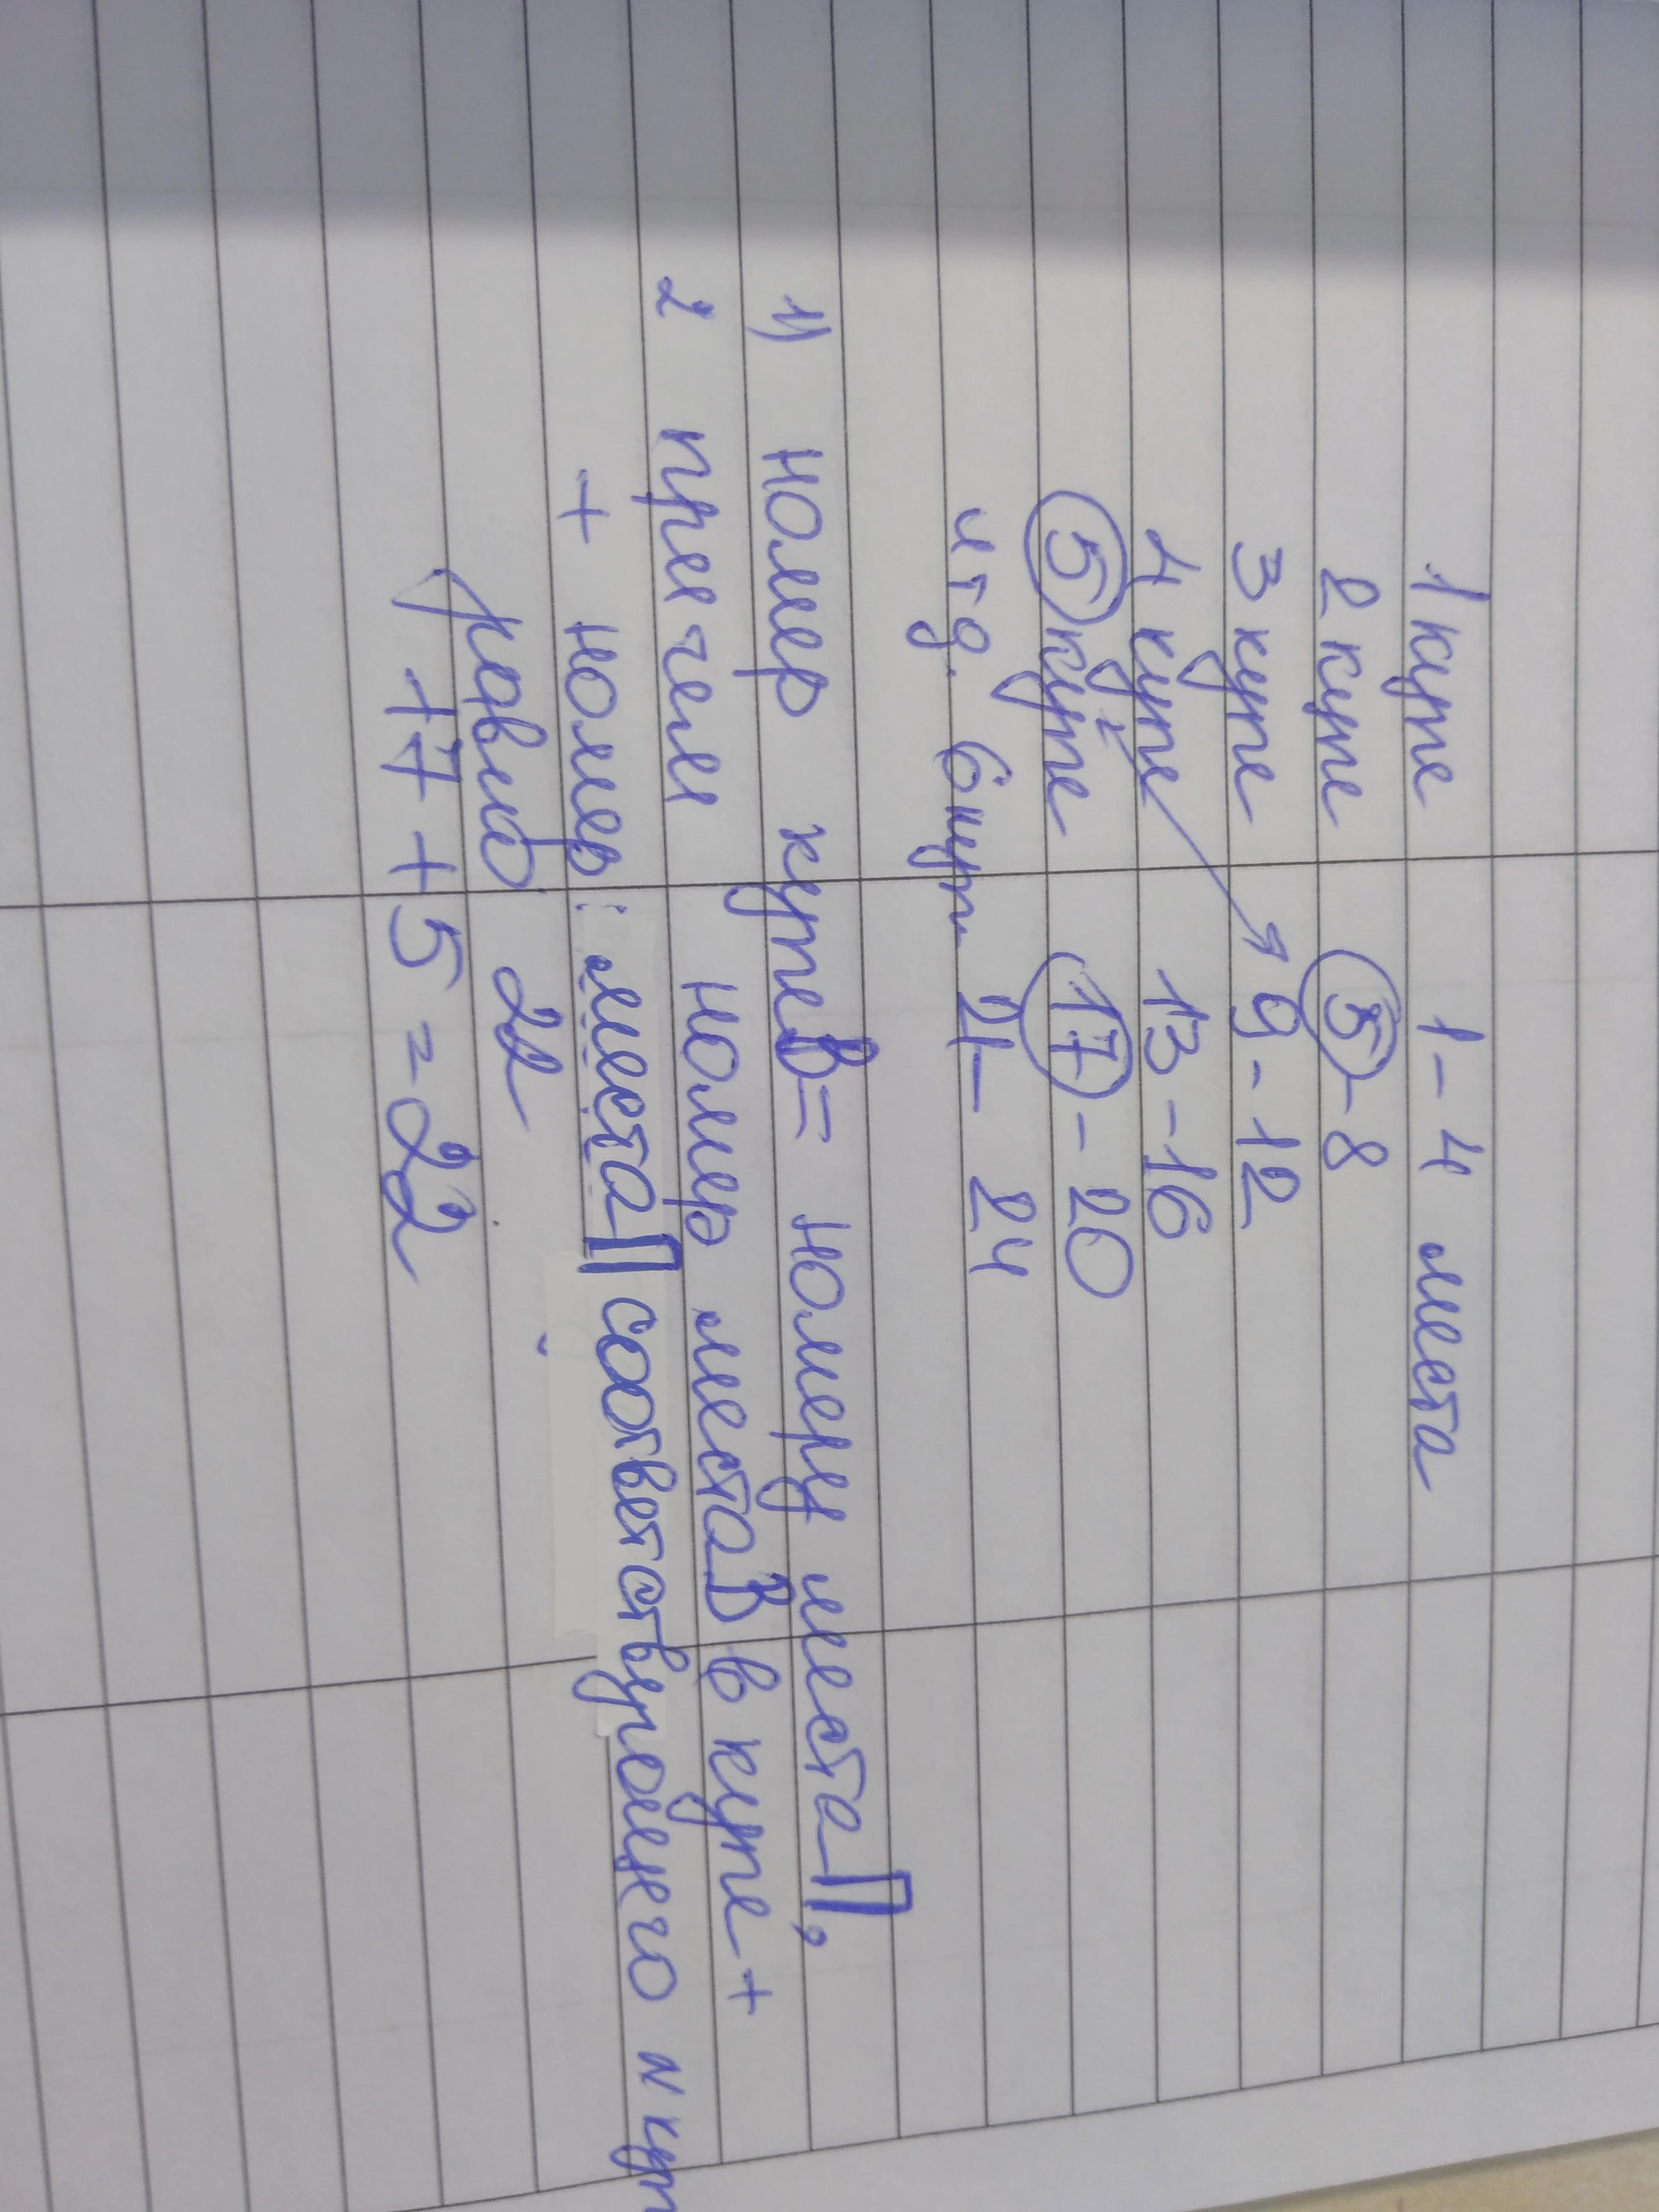 1 купе 1-4 места
2 купе 5-8
3 купе 9-12
4 купе 13-16
5 купе 17-20
и т д. 6 куп. 21-24
1) номер купе В = номеру места П,
2 причем номер места В в купе +
+ номер места П соответствующего № куп
равно 22
17+5=22